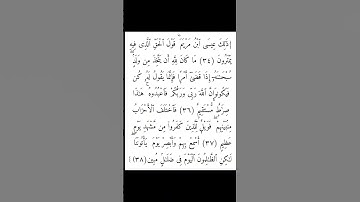 ذَٰلِكَ عِيسَى ٱبْنُ مَرْيَمَ قَوْلَ ٱلْحَقِّ ٱلَّذِى فِيهِ
يَمْتَرُونَ (٣٤) مَا كَانَ لِلَّهِ أَن يَتَّخِذَ مِن وَلَدٍ
سُبْحَٰنَهُۥٓ إِذَا قَضَىٰٓ أَمْرًا فَإِنَّمَا يَقُولُ لَهُۥ كُن
فَيَكُونُ وَإِنَّ ٱللَّهَ رَبِّى وَرَبُّكُمْ فَٱعْبُدُوهُ هَٰذَا
صِرَٰطٌ مُّسْتَقِيمٌ (٣٦) فَٱخْتَلَفَ ٱلْأَحْزَابُ
مِنۢ بَيْنِهِمْ فَوَيْلٌ لِّلَّذِينَ كَفَرُوا۟ مِن مَّشْهَدِ يَوْمٍ
عَظِيمٍ (٣٧) أَسْمِعْ بِهِمْ وَأَبْصِرْ يَوْمَ يَأْتُونَنَا
لَٰكِنِ ٱلظَّٰلِمُونَ ٱلْيَوْمَ فِى ضَلَٰلٍ مُّبِينٍ (٣٨)